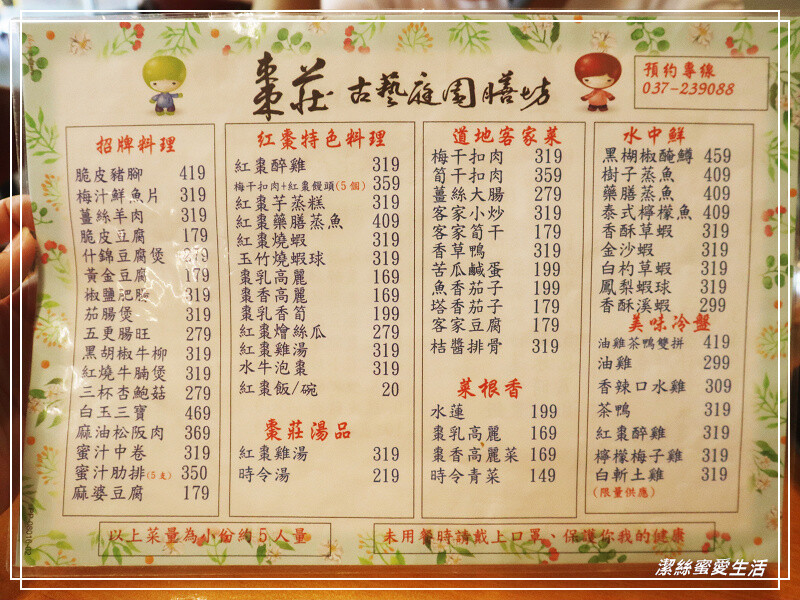 棗莊 古藝庭園膳坊
預約專線
037-239088
招牌料理
脆皮豬腳 419
梅汁鮮魚片 319
薑絲羊肉 319
脆皮豆腐 179
什錦豆腐煲 279
黃金豆腐 179
椒鹽肥腸 319
茄腸煲 319
五更腸旺 279
黑胡椒牛柳 319
紅燒牛腩煲 319
三杯杏鮑菇 279
白玉三寶 469
麻油松阪肉 369
蜜汁中卷 319
蜜汁肋排(5支) 350
麻婆豆腐 179
紅棗特色料理
紅棗醉雞 319
梅干扣肉+紅棗饅頭(5個) 359
紅棗芋蒸糕 319
紅棗藥膳蒸魚 409
紅棗燒蝦 319
玉竹燒蝦球 319
棗乳高麗 169
棗香高麗 169
棗乳香筍 199
紅棗燴絲瓜 279
紅棗雞湯 319
水牛泡棗 319
紅棗飯/碗 20
棗莊湯品
紅棗雞湯 319
時令湯 219
道地客家菜
梅干扣肉 319
筍干扣肉 359
薑絲大腸 279
客家小炒 319
客家筍干 179
香草鴨 319
苦瓜鹹蛋 199
魚香茄子 199
塔香茄子 179
客家豆腐 179
桔醬排骨 319
菜根香
水蓮 199
棗乳高麗 169
棗香高麗菜 169
時令青菜 149
水中鮮
黑胡椒醃鱒 459
樹子蒸魚 409
藥膳蒸魚 409
泰式檸檬魚 409
香酥草蝦 319
金沙蝦 319
白杓草蝦 319
鳳梨蝦球 319
香酥溪蝦 299
美味冷盤
油雞茶鴨雙拼 419
油雞 299
香辣口水雞 309
茶鴨 319
紅棗醉雞 319
檸檬梅子雞 319
白斬土雞 319
(限量供應)
以上菜量為小份約5人量
未用餐時請戴上口罩、保護你我的健康
潔絲蜜愛生活